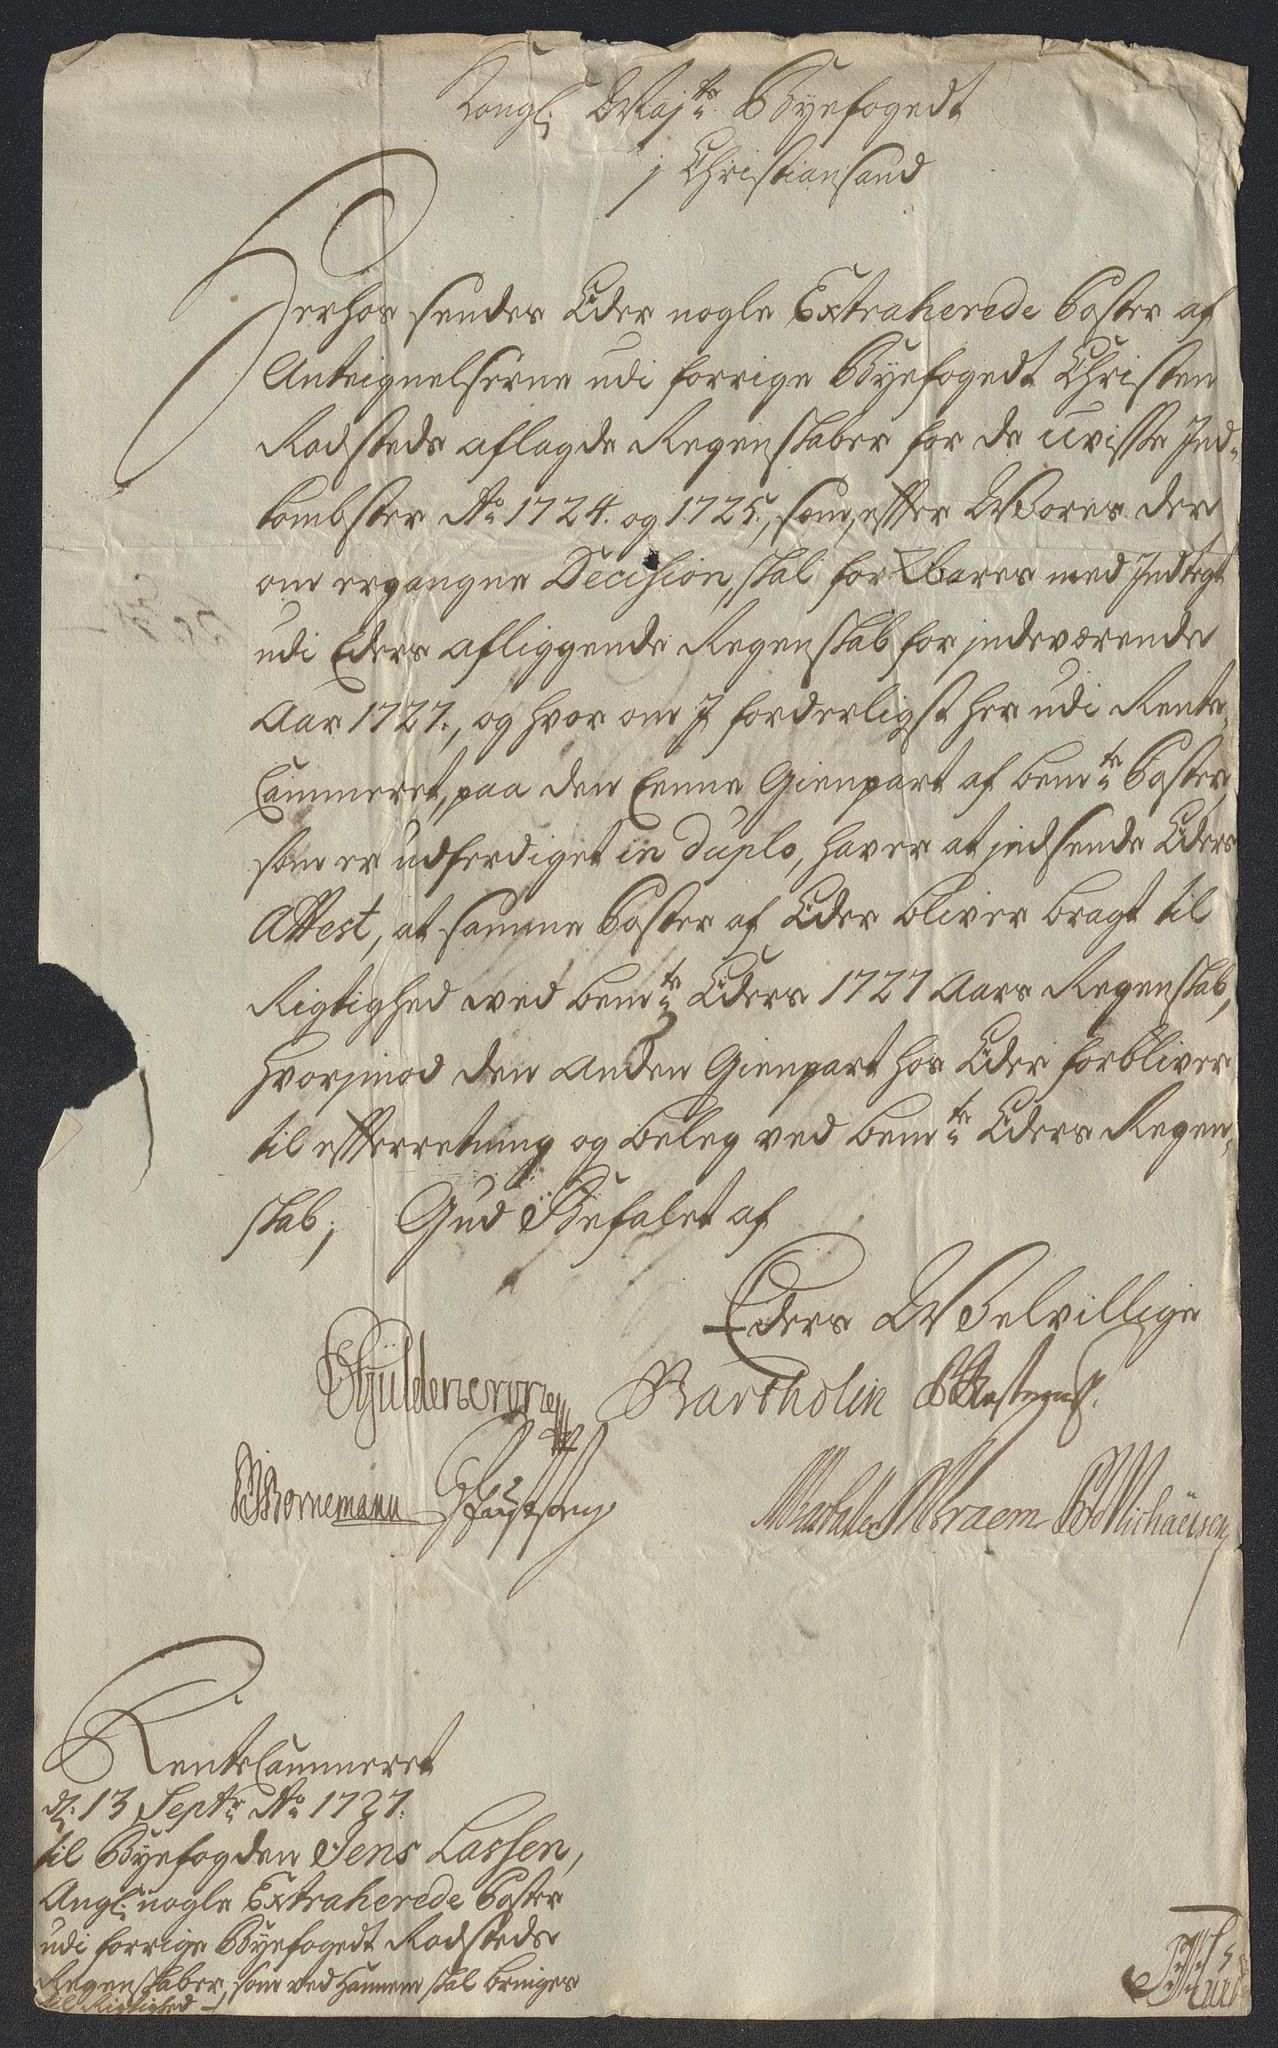 Kongl: Maj:ts Byefogedt
j Christiansand
Herhos sendes Eder nogle Extraherede Poster af
Antegnelserne udi forrige Byefogedt Christen
Rodsteds aflagde Regenskaber for de uvisse Ind-
kombster Ao 1724. og 1725., som, efter Wores der
om ergangne Decision, skal forklares med Indtegt
udi Eders afliggende Regenskab for jndeværende
Aar 1727., og hvor om I forderligst her udi Rente-
Cammeret, paa den Eene Gienpart af bemte Poster,
som er udferdiget in duplo, haver at jndsende Eders
Attest, at samme Poster af Eder bliver bragt til
Rigtighed ved bemte Eders 1727 Aars Regenskab,
hvorjmod den anden Gienpart hos Eder forbliver
til efterretning og beleg ved bemte Eders Regen-
skab; Gud Befalet af
Eders Welvillige
Güldencrone Bartholin
Bornemann Bræm Michaelsen
RenteCammeret
d: 13 Septr Ao 1727.
til Byefogden Jens Lassen,
Angl: nogle Extraherede Poster
udi forrige Byefogedt Rodsteds
Regenskaber, som ved hannem skal bringes
til Rigtighed